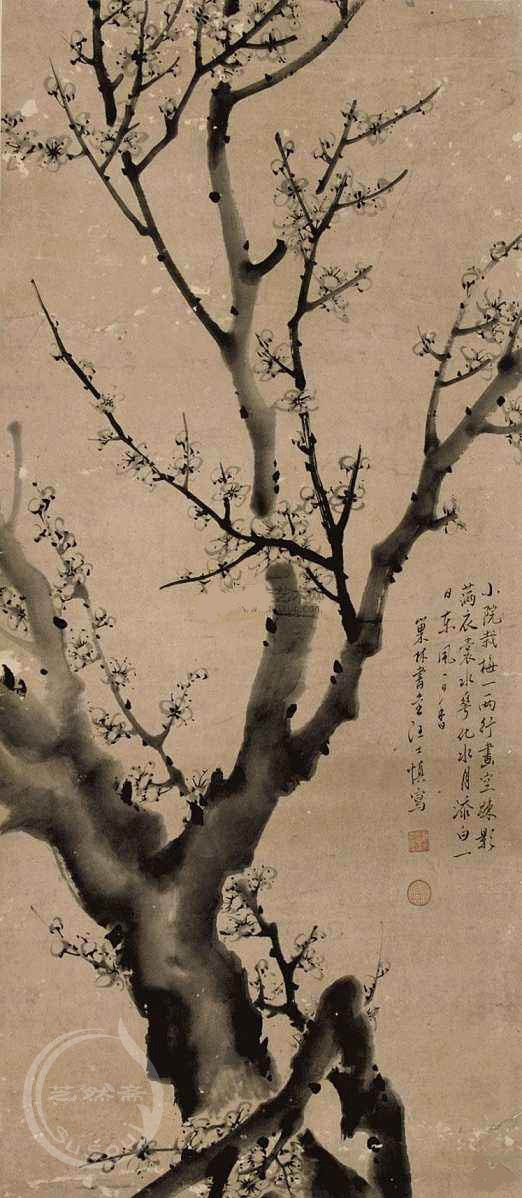 小院栽梅一两行畫空疎影
满衣裳冰華化水月添白一
日東風一日香
巢林書堂汪士慎寫
艺然斋